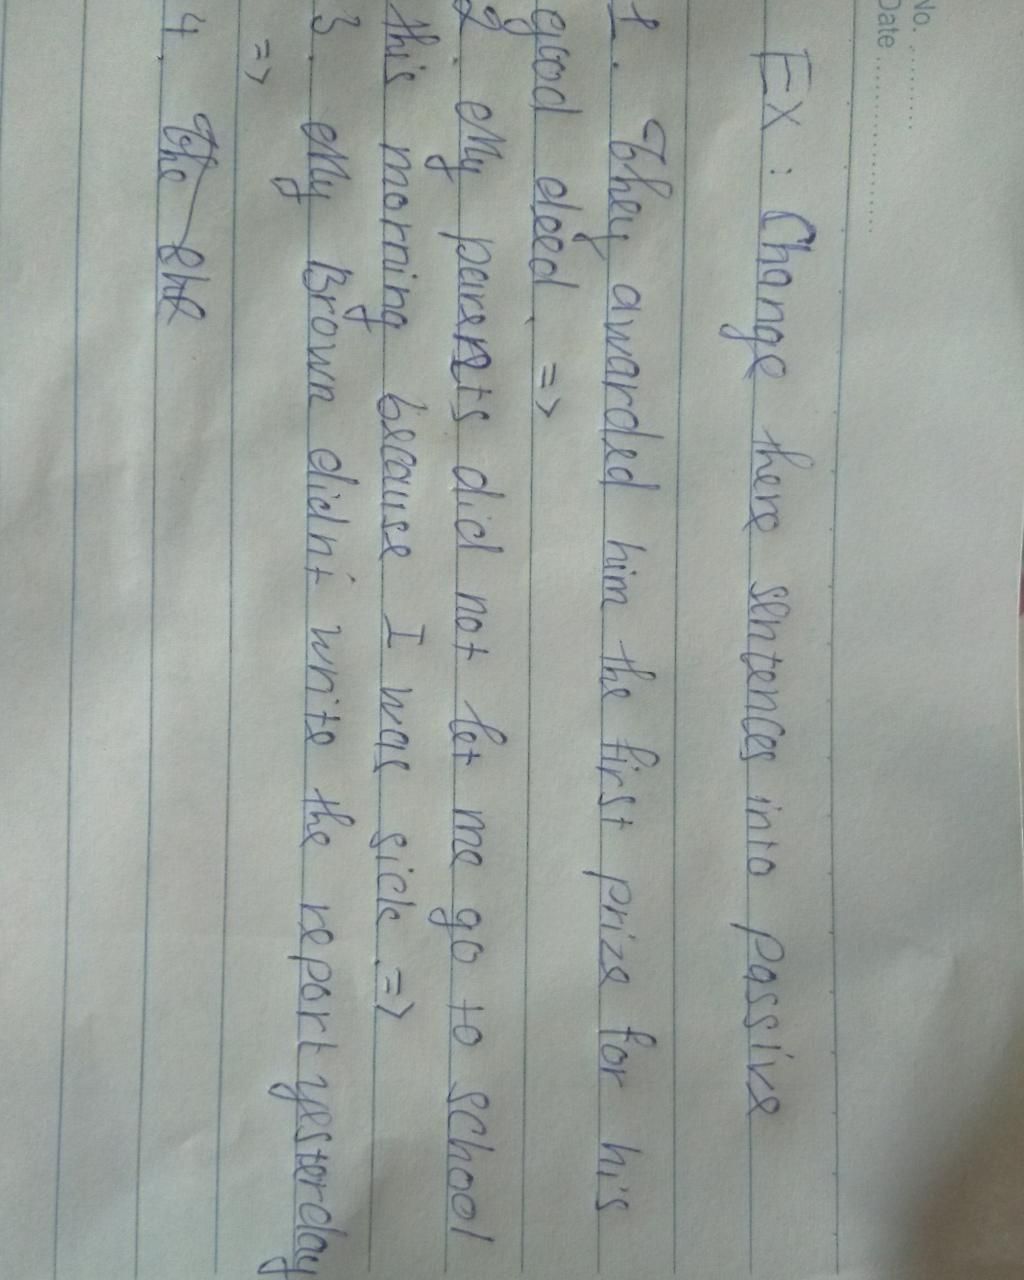 No. ............
Date ........................
EX : Change there sentences into passive
1. They awarded him the first prize for his
good deed. =>
2. My parents did not let me go to school
this morning because I was sick. =>
3. My Brown didn't write the report yesterday
=>
4. The